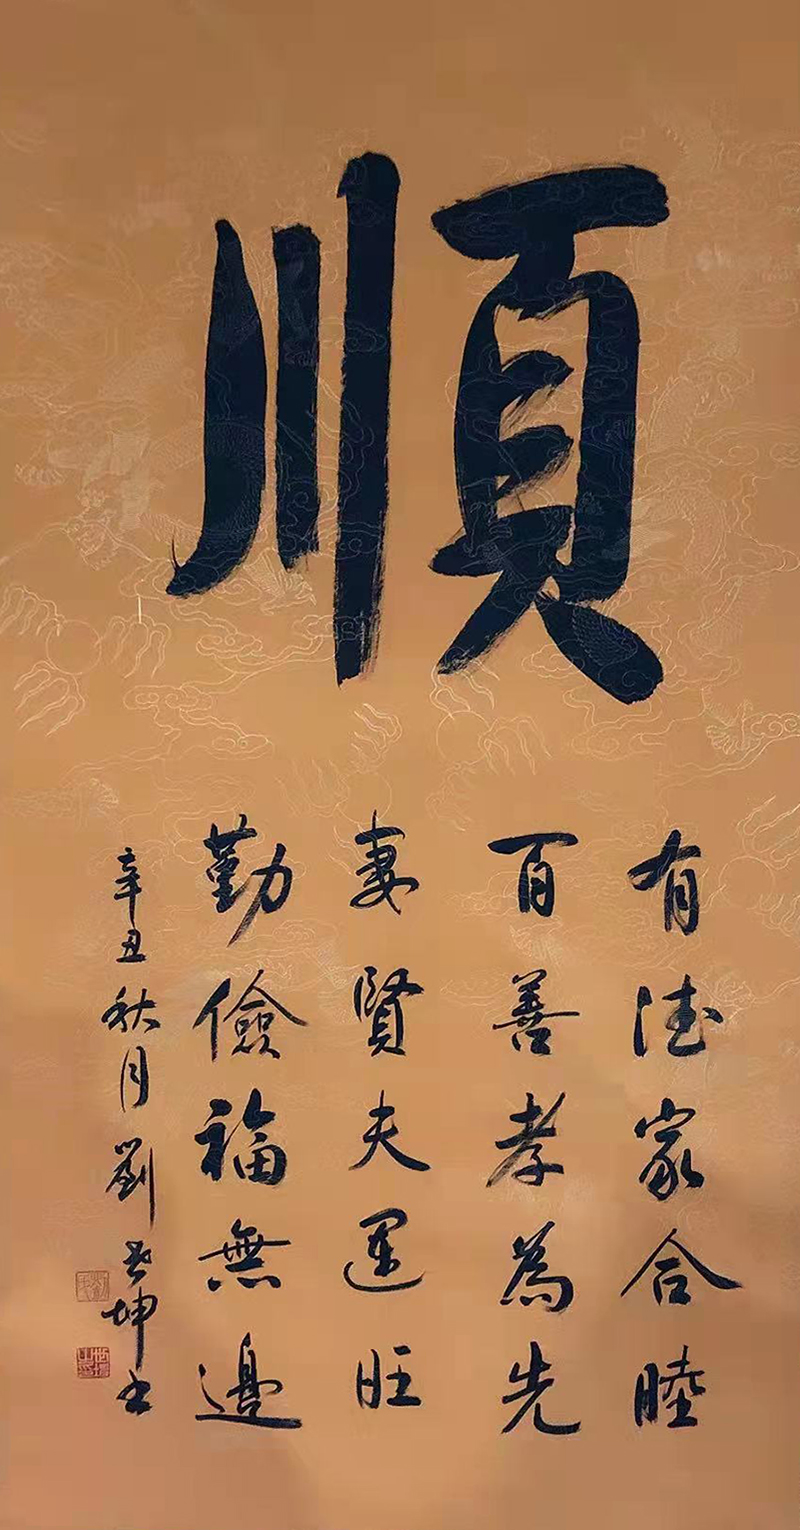 順
有德家合睦
百善孝為先
妻賢夫運旺
勤儉福無邊
辛丑秋月劉世坤書